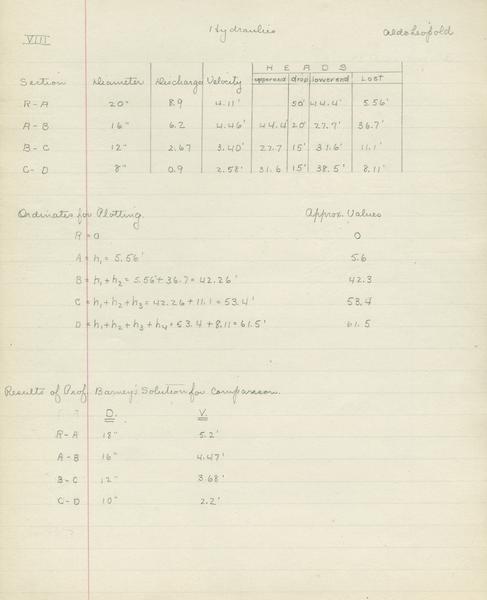 VIII Hydraulics Aldo Leopold
HEADS
Section Diameter Discharge Velocity upper end drop lower end Lost
R-A 20" 8.9 4.11' 50' 44.4' 5.56'
A-B 16" 6.2 4.46' 44.4' 20' 27.7' 36.7'
B-C 12" 2.67 3.40' 27.7 15' 31.6' 11.1'
C-D 8" 0.9 2.58' 31.6 15' 38.5' 8.11'
Ordinates for Plotting. Approx. Values
R = 0 0
A = h₁ = 5.56' 5.6
B = h₁+h₂ = 5.56+36.7 = 42.26' 42.3
C = h₁+h₂+h₃ = 42.26+11.1 = 53.4' 53.4
D = h₁+h₂+h₃+h₄ = 53.4+8.11 = 61.5' 61.5
Results of Prof. Barney's Solution for Comparison.
D. V.
R-A 18" 5.2'
A-B 16" 4.47'
B-C 12" 3.68'
C-D 10" 2.2'